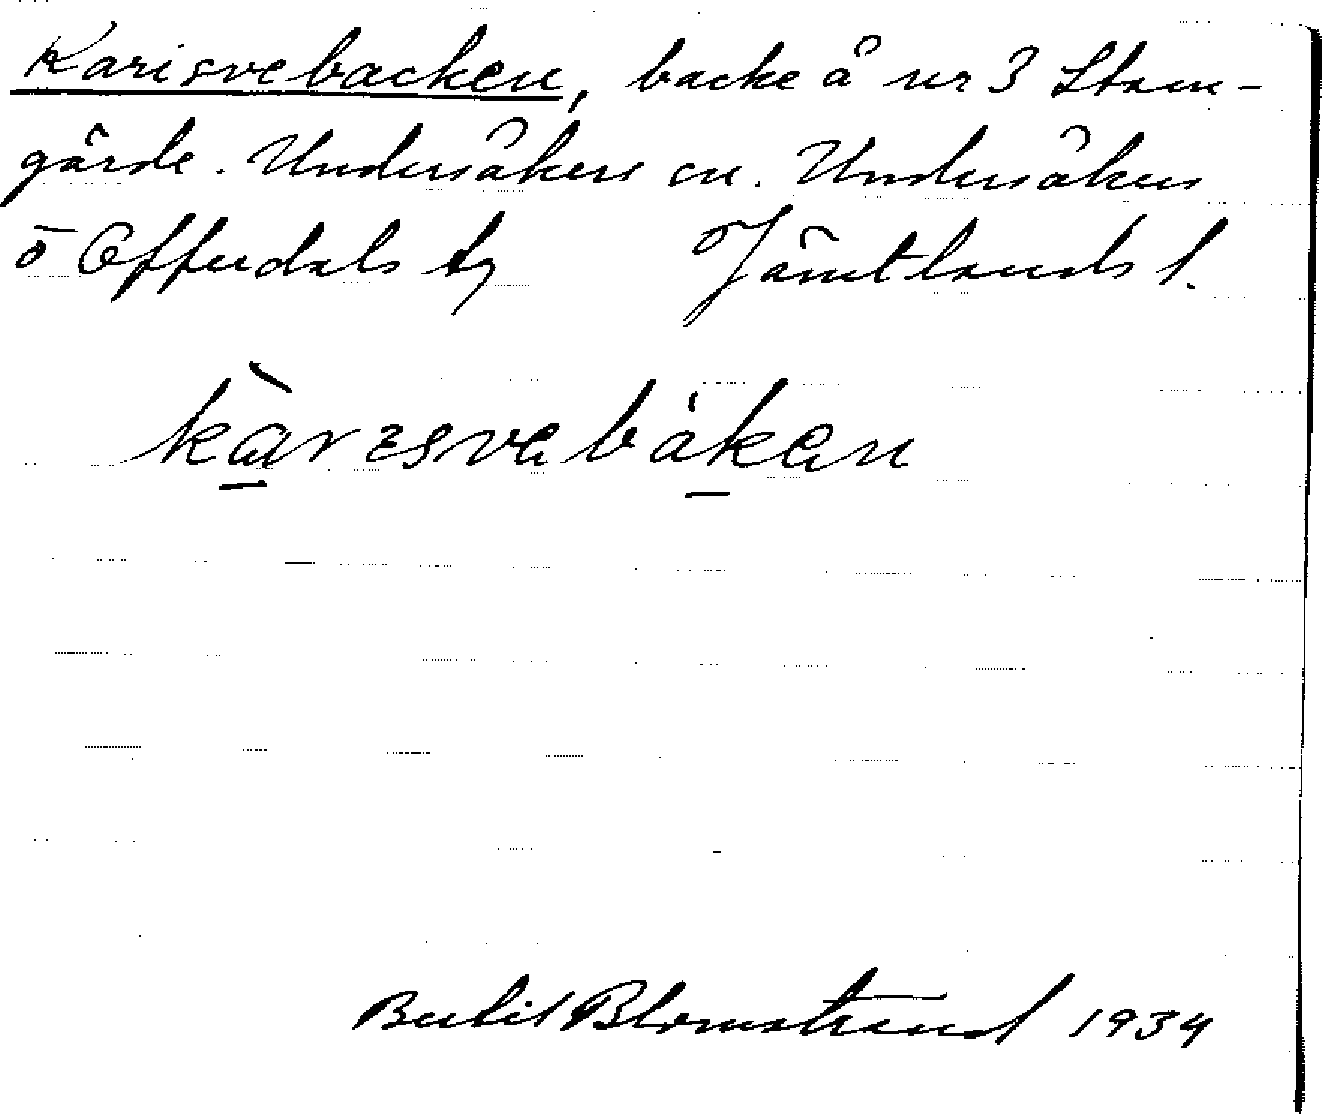 Karisvebacken, backe å nr 3 Stam-
gärde. Undersåkers sn. Undersåkers
o Offerdals tg Jämtlands l.
kàrɩsvebàken
Bertil Blomstrand 1934